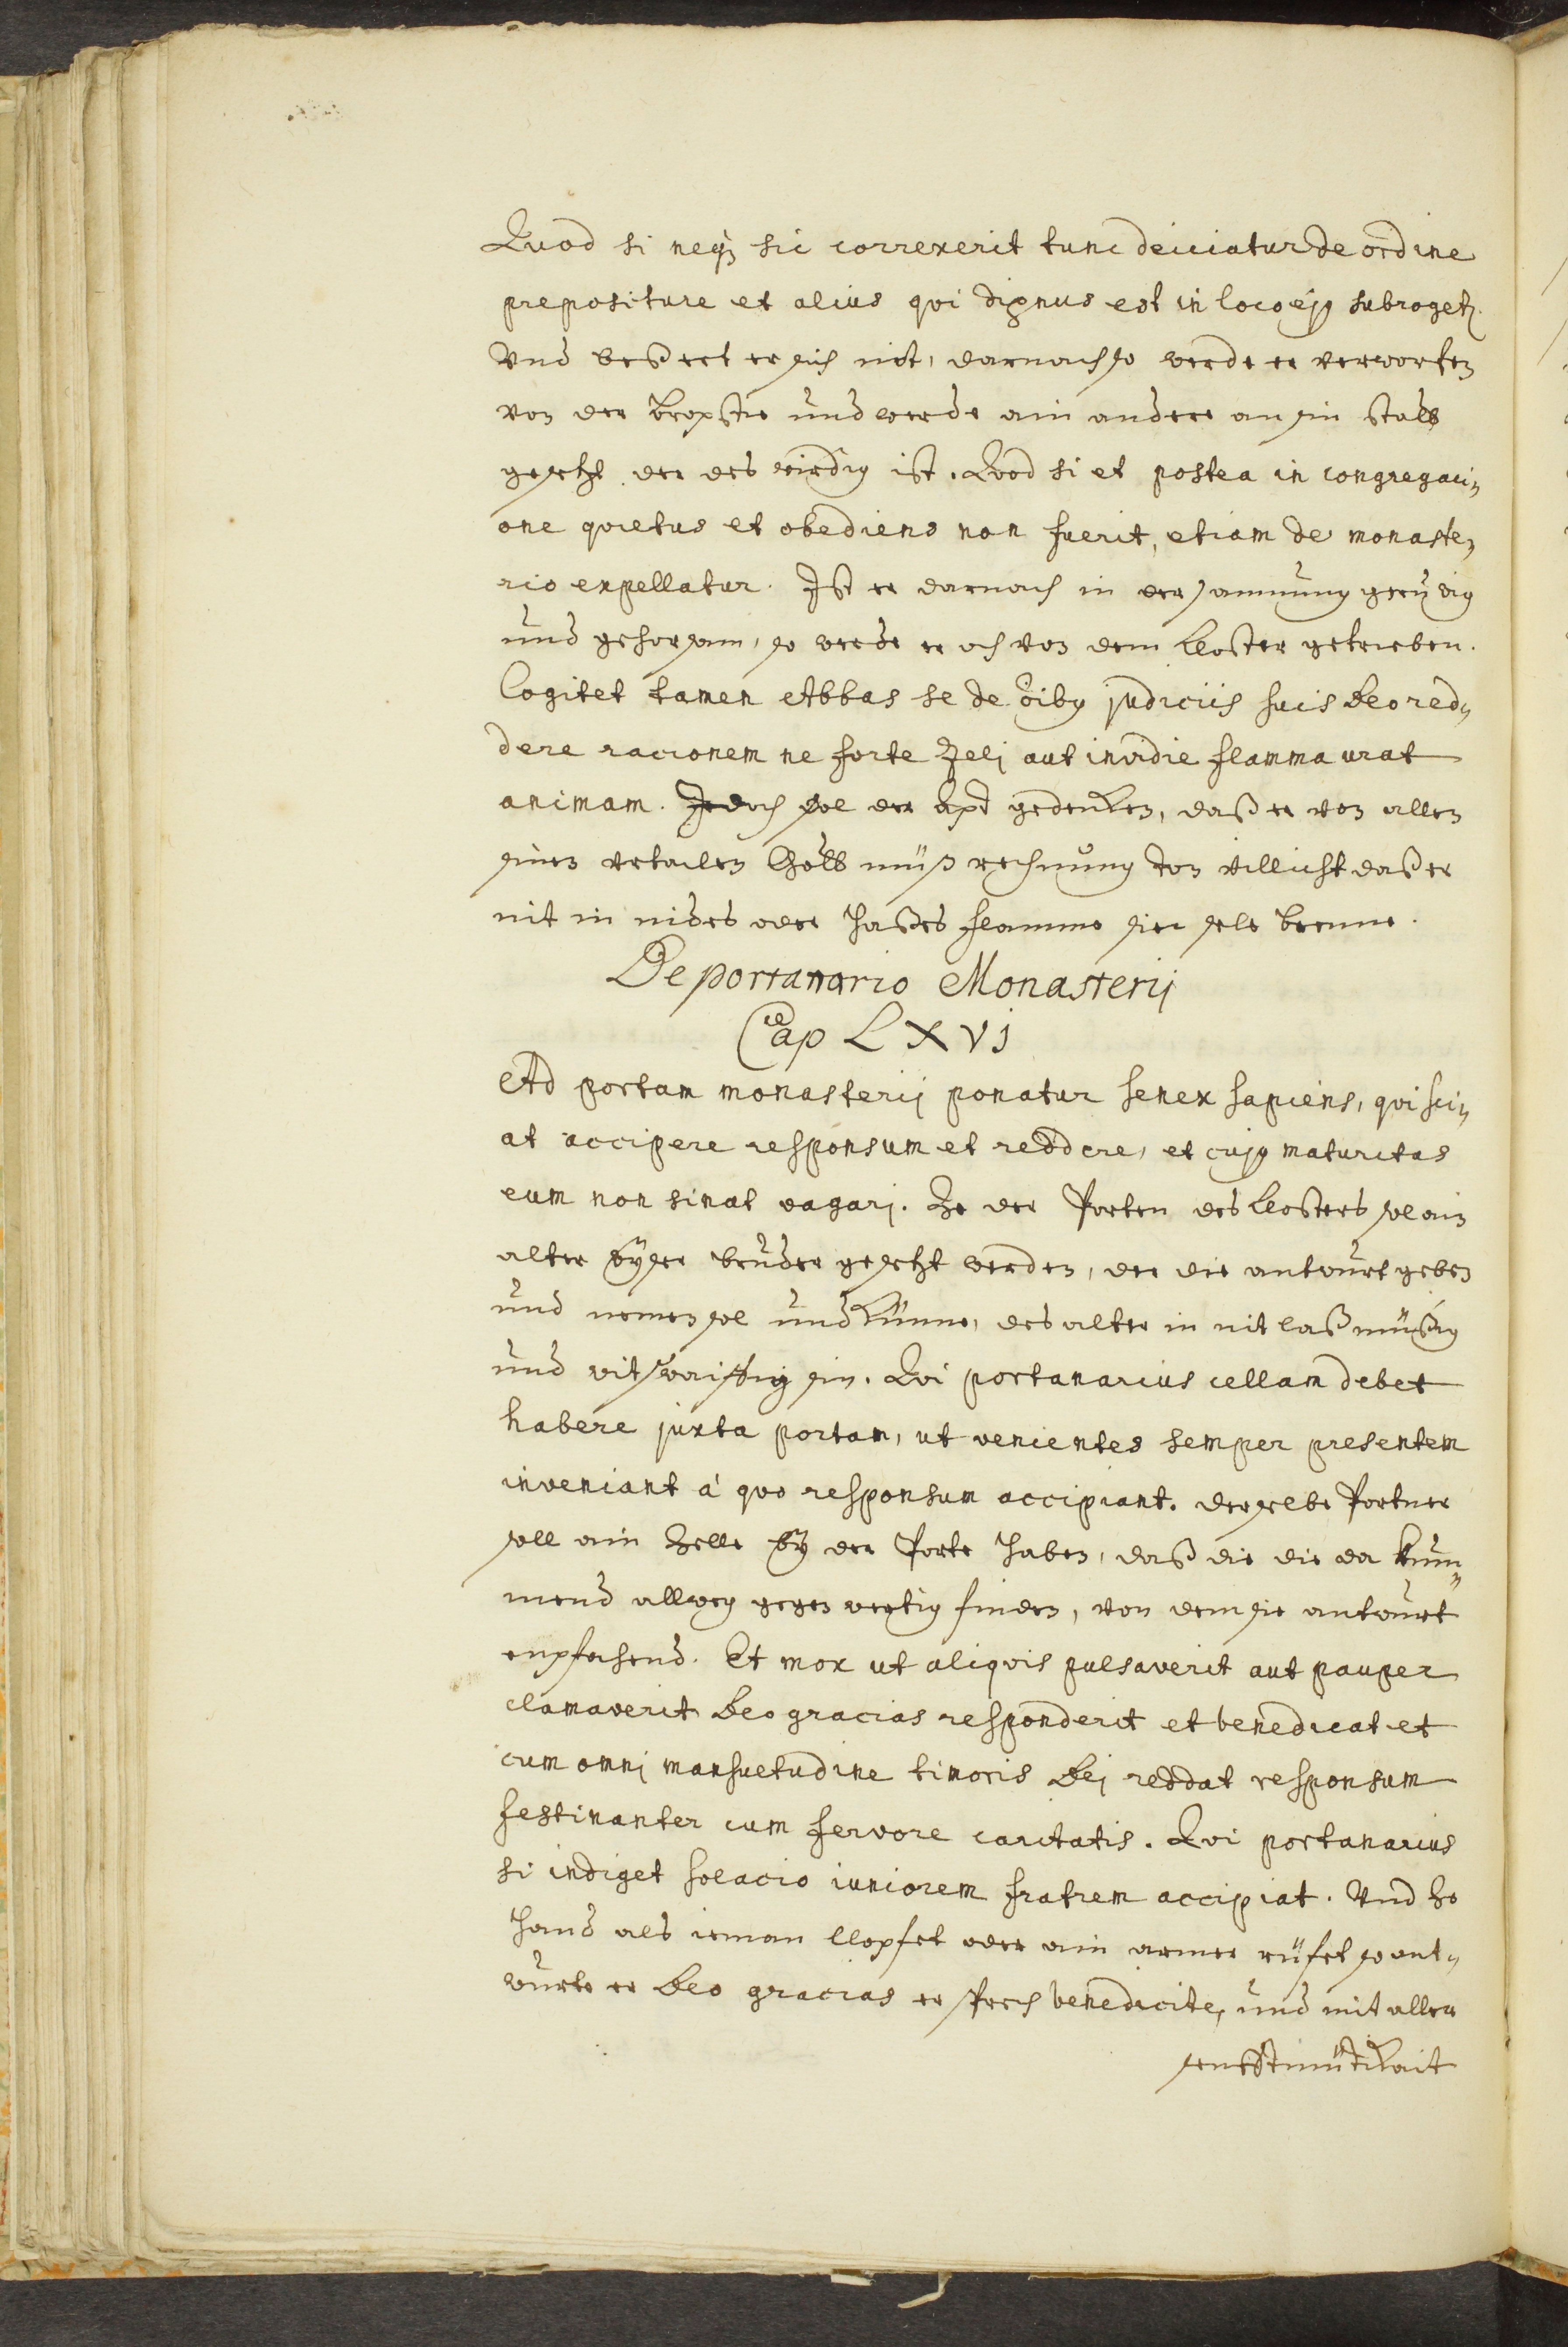 Quod si neqz sic correxerit tunc deiiciatur de ordine
prepositure et alius qvi dignus est in loco ejq subrogetz.
Vnd beßert er sich nit, darnach so werde er verworfen
von der Bropstie und werde ain andere an sin statt
gesetzt der des wirdig ist. Qvod si et postea in congregaci„
one qvietus et obediens non fuerit, etiam de monaste„
rio expellatur. Ist er darnach in der samnung gerüwig
und gehorsam, so werde er och von dem Closter getrieben.
Cogitet tamen Abbas se de oibq judiciis suis Deo red„
dere racionem ne forte Zelj aut invidie flamma urat
animam. Jedoch sol der Apt gedenken, daß er von allen
sinen vrtailen Gott müß rechnung ton villicht daß er
nit in nides oder haßes flamme sier sele brenne.
De portanario Monasterij
Cap LXVJ
Ad portam monasterij ponatur senex sapiens, qvi sci„
at accipere responsum et reddere, et cujq maturitas
eum non sinat vagarj. Ze der Porten des Closters sol ain
alter wyser bruder gesetzt werden, der die antwurt geben
und nemen sol und künne, des alter in nit laß müßig
und witswaiffig sin. Qvi portanarius cellam debet
habere juxta portam, ut venientes semper presentem
inveniant á qvo responsum accipiant. derselbe Portner
soll ain Zelle by der Porte haben, daß die die da kum„
mend allweg gegenwertig finden, von dem sie antwurt
enpfahend. Et mox ut aliqvis pulsaverit aut pauper
clamaverit Deo gracias responderit et benedicat et
cum omnj mansuetudine timoris Dej reddat responsum
festinanter cum fervore caritatis. Qvi portanarius
si indiget solacio iuniorem fratrem accipiat. Vnd ze
hand als ieman klopfet oder ain armer rüfet so ant„
wurte er Deo gracias er sprech benedicite, und mit aller
senfftmütikait